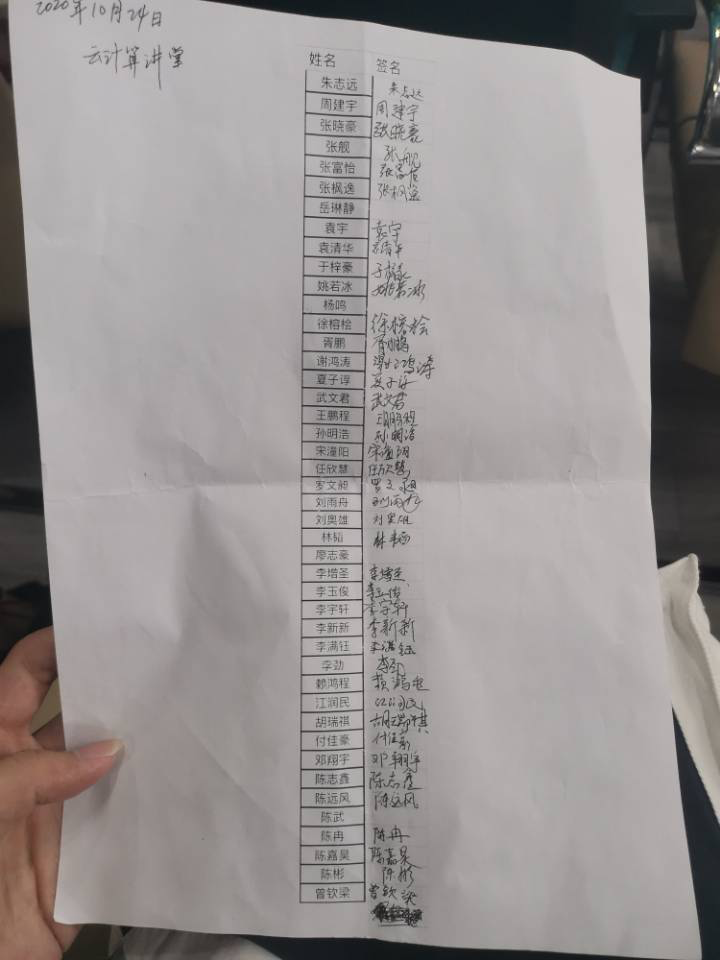 2020年10月24日
云计算讲堂
姓名 签名
朱志远 朱志远
周建宇 周建宇
张晓豪 张晓豪
张舰 张舰
张富怡 张富怡
张枫逸 张枫逸
岳琳静
袁宇 袁宇
袁清华 袁清华
于梓豪 于梓豪
姚若冰 姚若冰
杨鸣
徐榕桧 徐榕桧
胥鹏 胥鹏
谢鸿涛 谢鸿涛
夏子谆 夏子谆
武文君 武文君
王鹏程 王鹏程
孙明浩 孙明浩
宋潼阳 宋潼阳
任欣慧 任欣慧
罗文昶 罗文昶
刘雨舟 刘雨舟
刘奥雄 刘奥雄
林韬 林韬
廖志豪
李增圣 李增圣
李玉俊 李玉俊
李宇轩 李宇轩
李新新 李新新
李满钰 李满钰
李劲 李劲
赖鸿程 赖鸿程
江润民 江润民
胡瑞祺 胡瑞祺
付佳豪 付佳豪
邓翔宇 邓翔宇
陈志鑫 陈志鑫
陈远风 陈远风
陈武
陈冉 陈冉
陈嘉昊 陈嘉昊
陈彬 陈彬
曾钦梁 曾钦梁